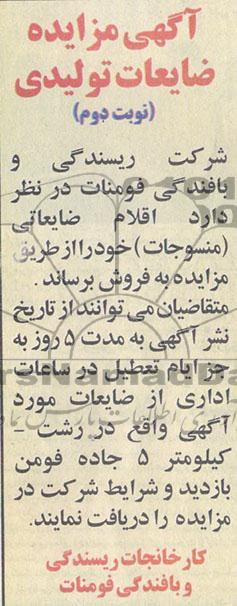 آگهی مزایده
ضایعات تولیدی
(نوبت دوم)
شرکت ریسندگی و
بافندگی فومنات در نظر
دارد اقلام ضایعاتی
(منسوجات) خود را از طریق
مزایده به فروش برساند.
متقاضیان می توانند از تاریخ
نشر آگهی به مدت ۵ روز به
جز ایام تعطیل در ساعات
اداری از ضایعات مورد
آگهی واقع در رشت -
کیلومتر ۵ جاده فومن
بازدید و شرایط شرکت در
مزایده را دریافت نمایند.
کارخانجات ریسندگی
و بافندگی فومنات